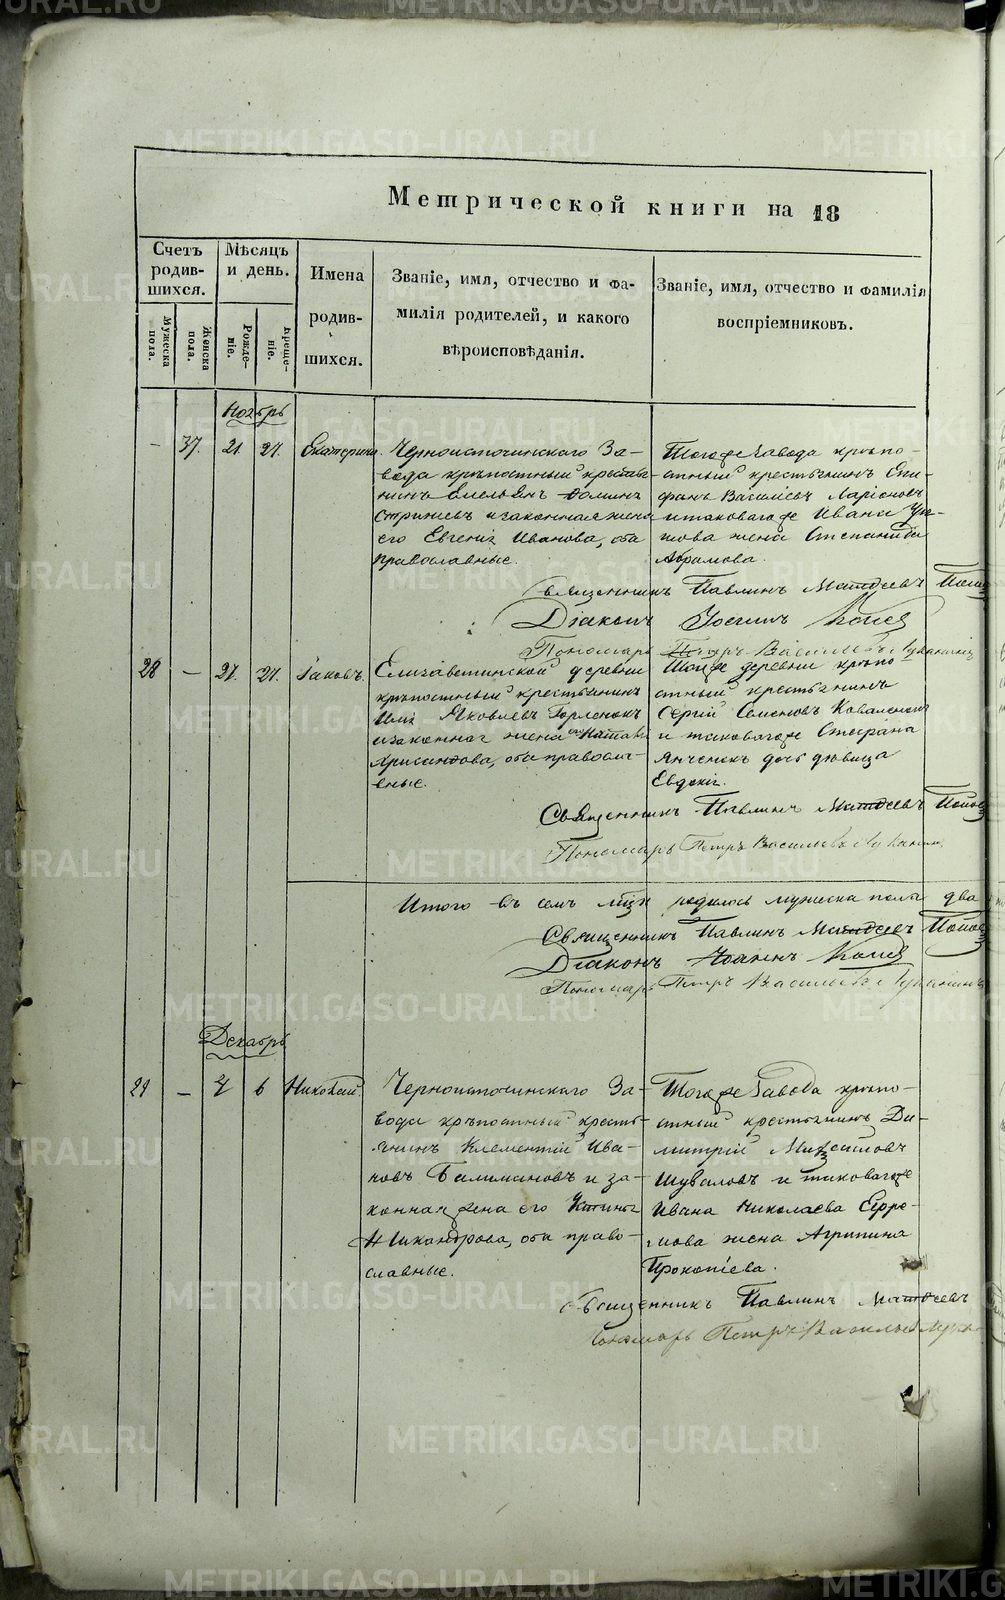 Метрической книги на 18
Счетъ родив- шихся.
Мѣсяцъ и день.
Имена родив- шихся.
Званіе, имя, отчество и фа-
милія родителей, и какого
вѣроисповѣданія.
Званіе, имя, отчество и фамилія
воспріемниковъ.
Мужеска пола.
Женска пола.
Рожде- ніе.
Креще- ніе.
Ноябрь
– 37. 21. 27. Екатерина.
Черноисточинскаго За-
вода крѣпостный крестья-
нинъ Емельянъ
Стрижевъ и законная жена
его Евгенія Иванова, оба
православные.
Тогоже Завода крѣпо-
стный крестьянинъ Епи-
фанъ Васильевъ Ларіоновъ
и таковагоже Ивана
жена Степанида
Абрамова.
Священникъ Павлинъ Матѳеевъ
Діаконъ Іоаннъ
Пономарь Петръ Васильевъ
28 – 27. 27. Іаковъ.
Елизаветинской деревни
крѣпостный крестьянинъ
Илія Яковлевъ Горленокъ
и законная жена его
Хрисанѳова, оба правосла-
вные.
Тойже деревни крѣпо
стный крестьянинъ
Сергій Семеновъ Коваленокъ
и таковагоже Стефана
Янченокъ дочь дѣвица
Евдокія.
Священникъ Павлинъ Матѳеевъ
Пономарь Петръ Васильевъ
Итого въ семъ родилось мужеска пола два
Священникъ Павлинъ Матѳеевъ
Діаконъ Іоаннъ
Пономарь Петръ Васильевъ
Декабрь
29 – 6 Николай
Черноисточинскаго За-
вода крѣпостный кресть-
янинъ Клементій Ива-
новъ Балимановъ и за-
конная жена его
Никандрова, оба право-
славные.
Тогоже Завода крѣпо-
стный крестьянинъ Ди-
митрій Михайловъ
Шуваловъ и таковагоже
Ивана Николаева Ефре-
мова жена Агрипина
Прокопіева.
Священникъ Павлинъ Матѳеевъ
Пономарь Петръ Васильевъ
METRIKI.GASO-URAL.RU